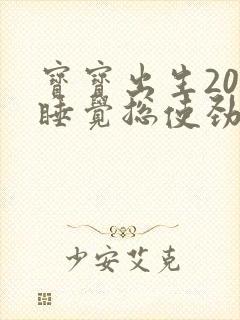 寶寶出生20
睡覺總使勁
少安艾克